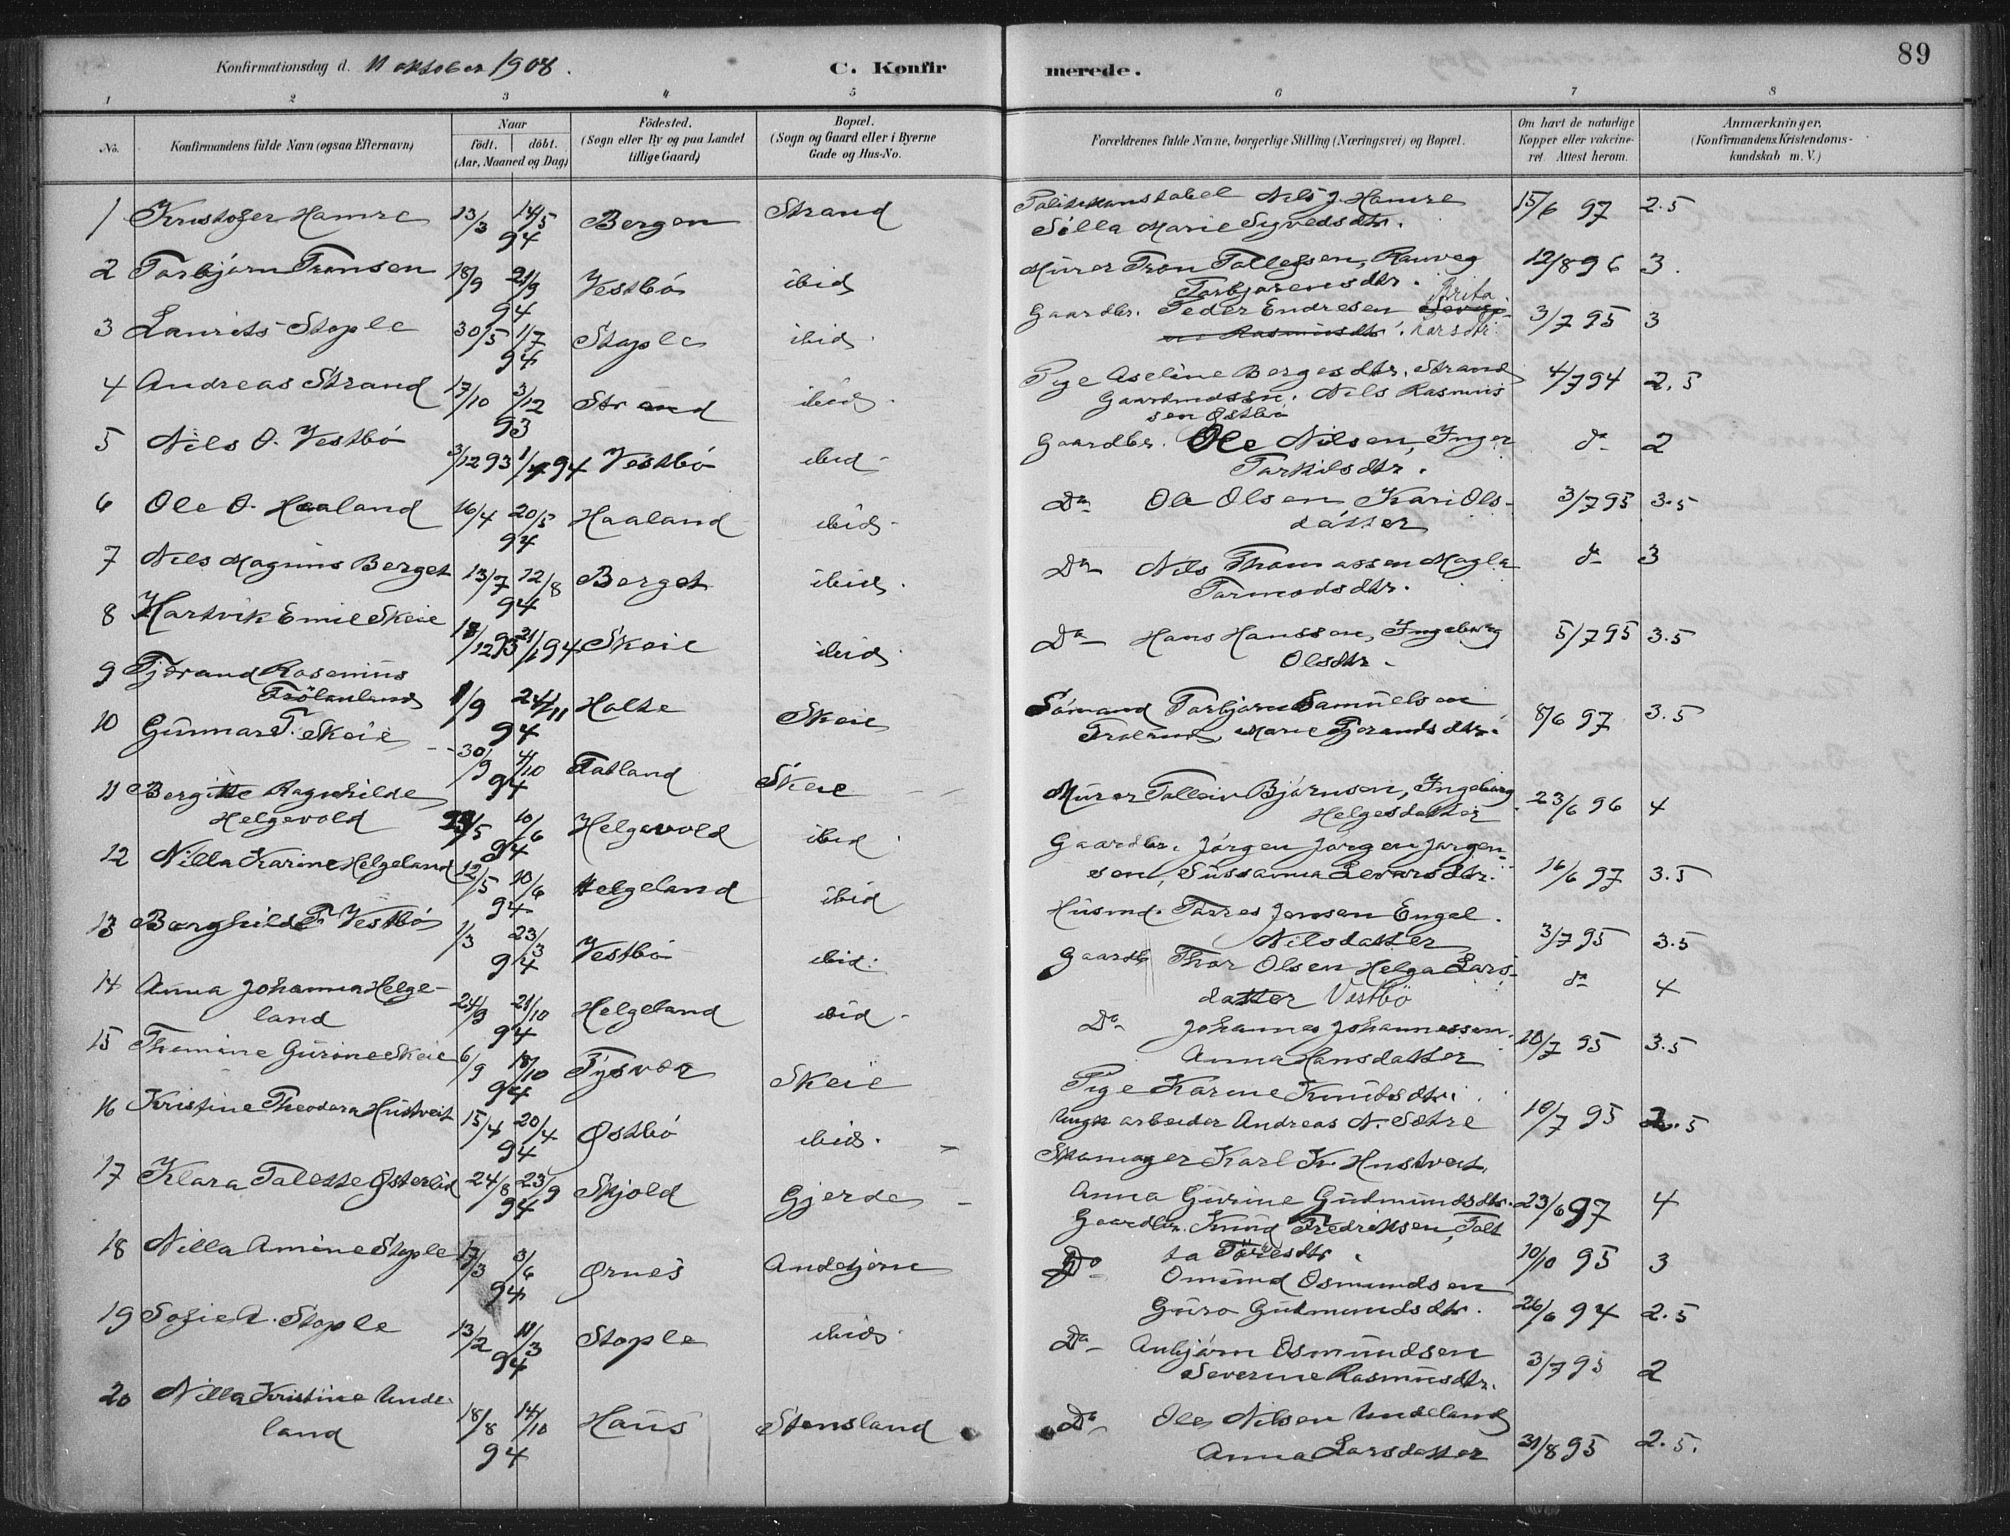 89
Konfirmationsdag d. 11 oktober 1908.
C. Konfir
merede.
1 2 3 4 5 6 7 8
No.
Konfirmandens fulde Navn (ogsaa Efternavn)
Naar
født. døbt.
(Aar, Maaned og Dag)
Födested.
(Sogn eller By og paa Landet
tillige Gaard)
Bopæl.
(Sogn og Gaard eller i Byerne
Gade og Hus-No.
Forældrenes fulde Navne, borgerlige Stilling (Næringsvei) og Bopæl.
Om havt de naturlige
Kopper eller vakcine-
ret Attest herom.
Anmærkninger.
(Konfirmandens Kristendoms-
kundskab m. V.)
1 Kristofer Hamre 13/3 14/5 94 Bergen Strand Politikonstabel Nils J. Hamre 15/6 97 2.5
Silla Marie Syvedsdtr.
2 Torbjörn Tronsen 18/9 21/9 94 Vestbö ibid Murer Tron Tollefsen, Rauveg 12/8 96 3.
Torbjørensdtr.
3 Laurits Stople 30/5 1/7 94 Stople ibid. Gaardbr. Peder Endresen Brita 3/7 95 3
Rasmusdtr. Larsdtr.
4 Andreas Strand 17/10 3/12 93 Strand ibid. Pige Aseline Bergesdtr. Strand 4/7 94 2.5
Gaardmdssn. Nils Rasmus
sen Østbö
5 Nils O. Vestbö 3/12 93 1/1 94 Vestbö ibid Gaardbr. Ole Nilsen, Inger do 2
Torkilsdtr.
6 Ole O. Haaland 16/4 20/5 94 Haaland ibid Do Ole Olsen Kari Ols- 3/7 95 3.5
datter
7 Nils Magnus Berget 13/7 12/8 94 Berget ibid. Do Nils Thomassen Magla do 3
Tormodsdtr.
8 Hartvik Emil Skeie 18/12 93 21/1 94 Skeie ibid. Do Hans Hanssen, Ingeborg 5/7 95 3.5
Olsdtr.
9 Tjerand Rasmus
1/9 24/11 94 Holte Skeie Sömand Torbjörn Samuelsen 8/6 97 3.5
Marie Tjerandsdtr.
10 Gunnar T. Skeie 30/9 4/10 94 Tatland Skeie Murer Tolleiv Björnsen, Ingeborg 23/6 96 4
Helgesdatter
11 Bergitte Ragnhilde
Helgevold 29/5 10/6 94 Helgevold ibid Gaardbr. Jörgen Jörgen Jörgen-
sen, Sussanna Levardsdtr. 16/6 97 3.5
12 Nilla Karine Helgeland 12/5 10/6 94 Helgeland ibid Husmd. Torres Jensen Engel
Nilsdatter 3/7 95 3.5
13 Borghild T. Vestbö 1/3 23/3 94 Vestbö ibid. Gaardb Thor Olsen Helga Lars-
datter Vestbö do 4
14 Anna Johanna Helge-
land 24/9 21/10 94 Helgeland ibid Do Johannes Johannessen
Anna Hansdatter 10/7 95 3.5
15 Thomine Gurine Skeie 6/9 18/10 94 Tysvær Skeie Pige Karine Knutsdtr.
Ungk arbeider Andreas N. Sætre 10/7 95 2.5
16 Kristine Theodora Hustveit 15/4 20/4 94 Østbö ibid. Skomager Karl K. Hustveit,
Anna Gurine Gudmundsdtr. 23/6 97 4
17 Klara Talette Østerlid 24/8 23/9 94 Skjold Gjerde Gaardbr. Knud Fredriksen, Talt
ta Toresdtr. 10/10 95 3
18 Nilla Amine Stople 17/3 3/6 94 Ørnes Andetjörn Do Omund Osmundsen
Guro Gudmundsdtr. 26/6 94 2.5
19 Sofie A. Stople 13/2 11/3 94 Stople ibid. Do Anbjörn Osmundsen
Severine Rasmusdtr. 3/7 95 2
20 Nilla Kristine Unde-
land 18/8 14/10 94 Haus Stensland Do Ole Nilsen Undeland
Anna Larsdatter 31/8 95 2.5.